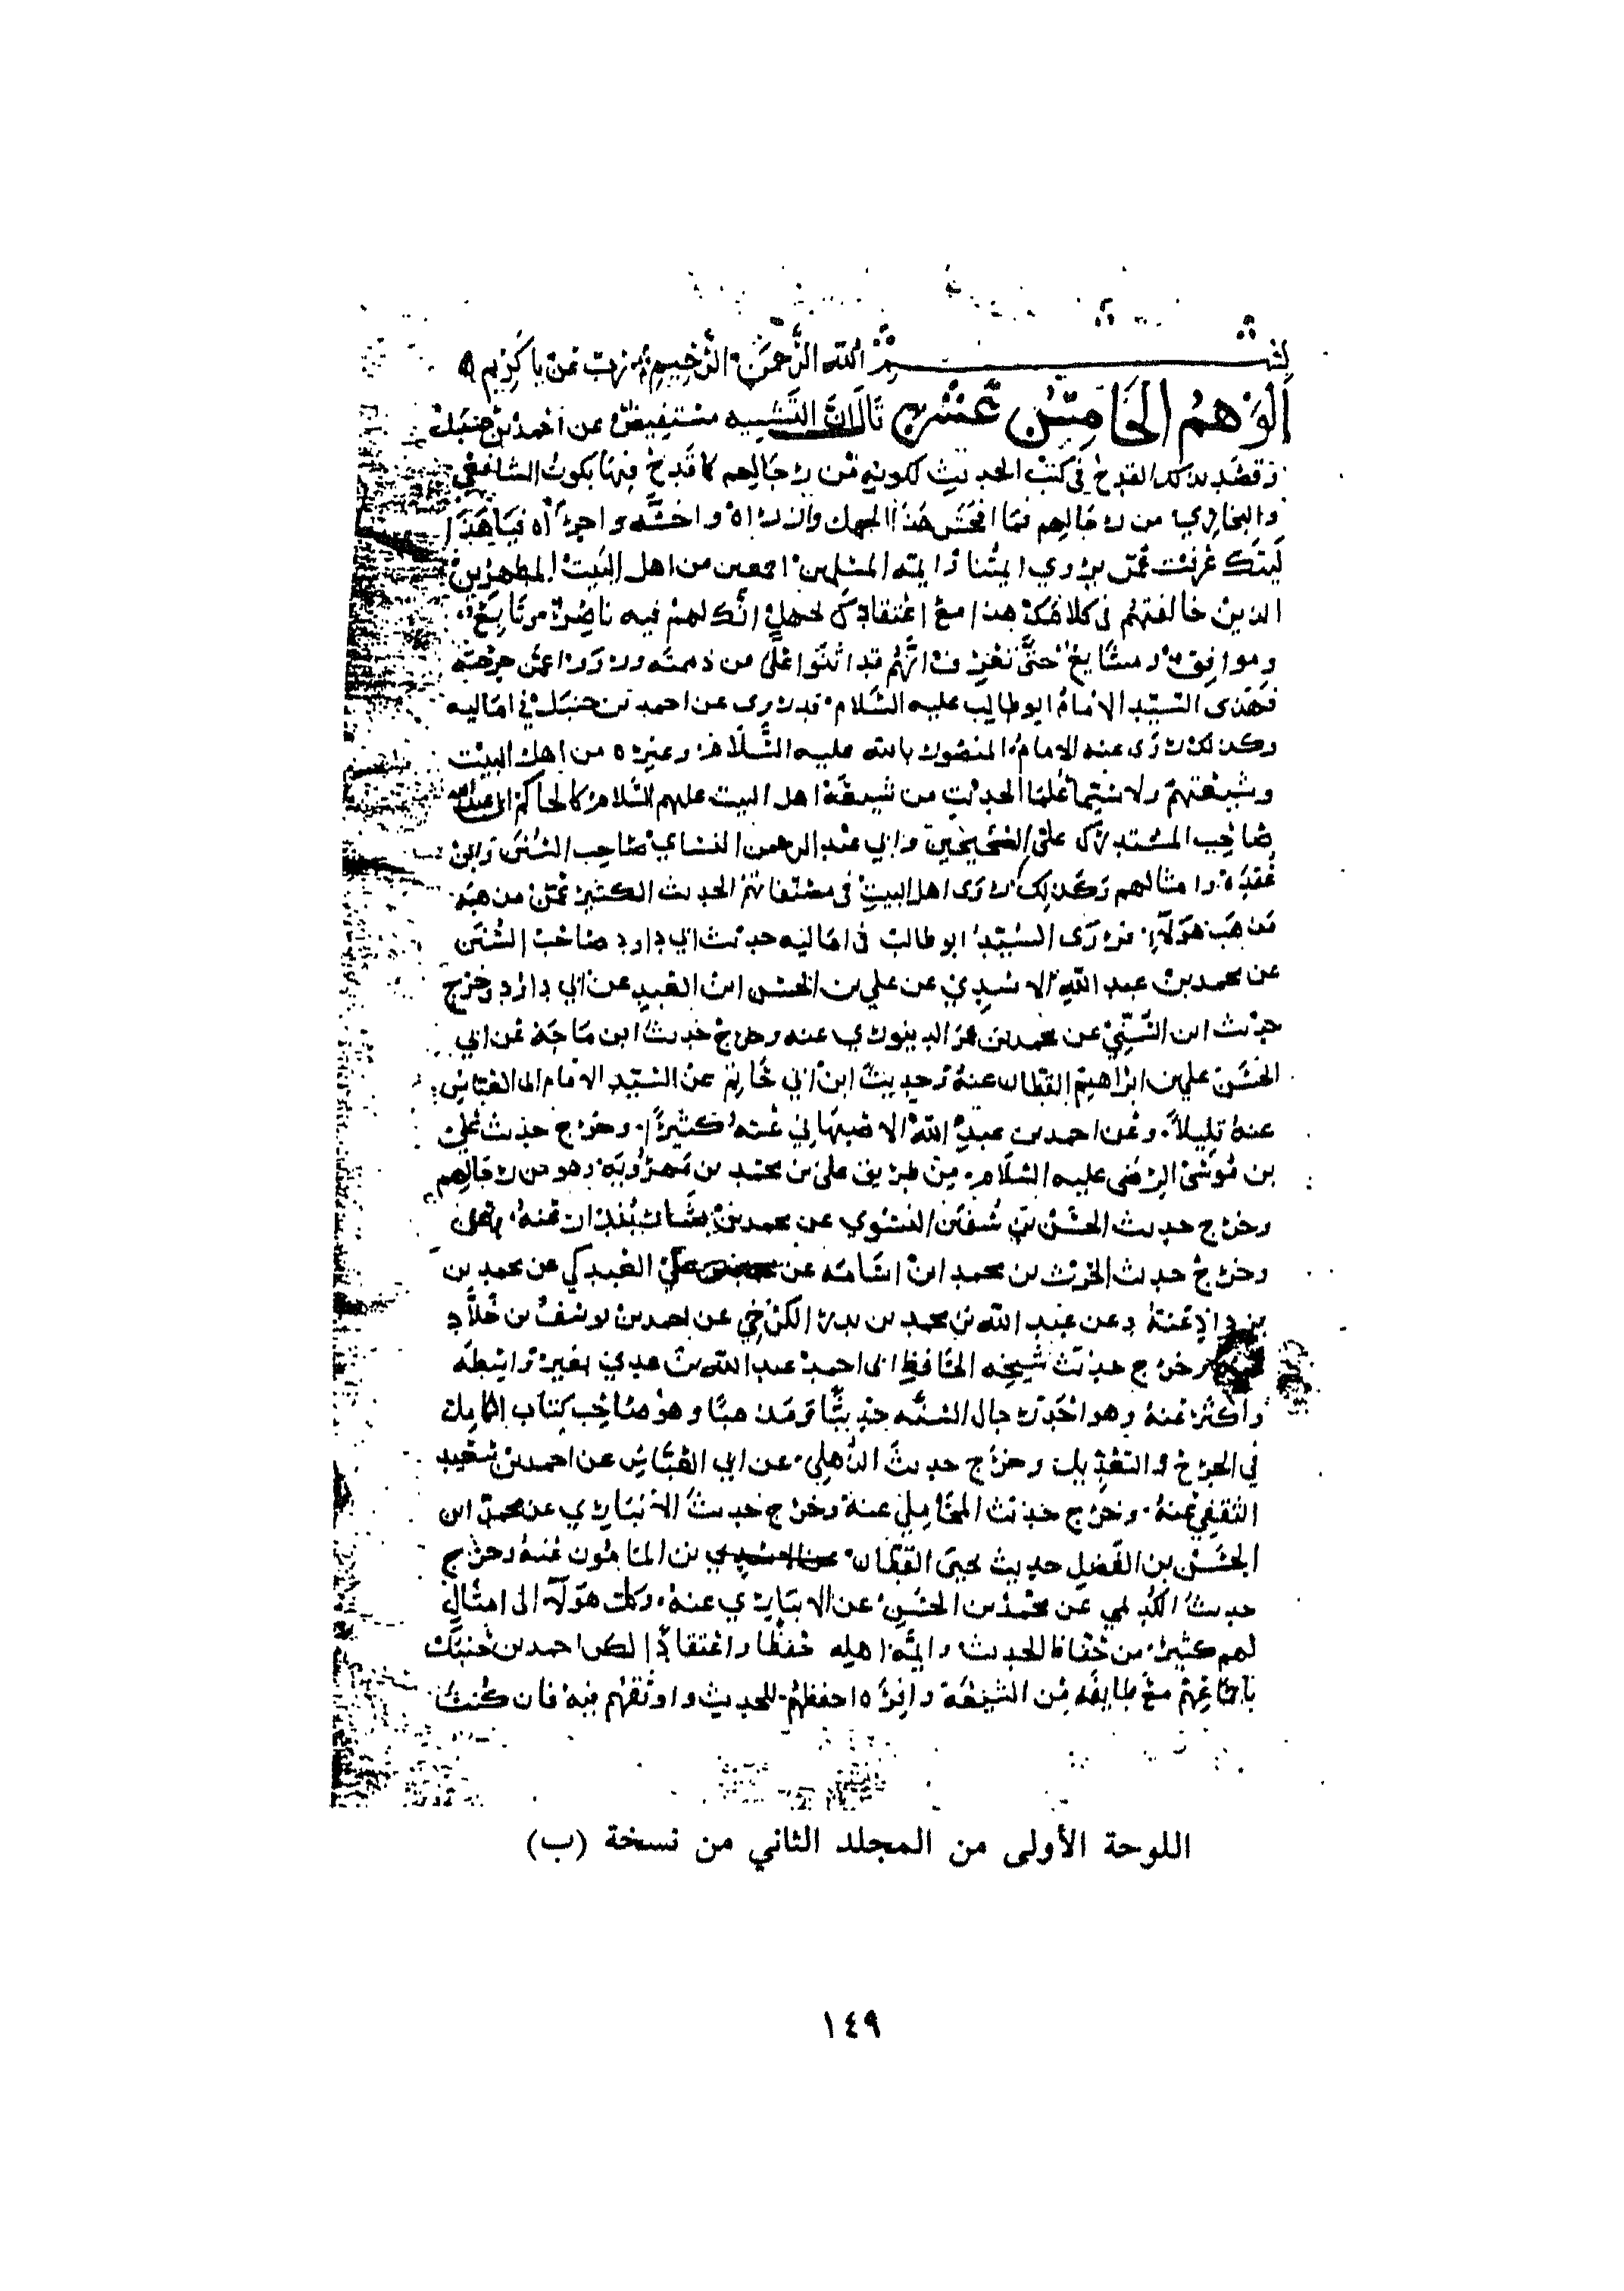 بسم الله الرحمن الرحيم رب تمن يا كريم
الوهم الخامس عشر قال ان التشبيه مستفيض عن احمد بن حنبل
وقصد بذلك القدح في كتب الحديث لكونه من رجالهم كما قدح فيها بكون الشافعي
والبخاري من رجالهم فما افحش هذا الجهل وازراه واخسه واجراه فيا هذا
ليتك عرفت عمن يروي ايمتنا وايمة المسلمين اجمعين من اهل البيت المطهرين
الذين خالفتهم في كلامك هذا مع اعتقادك لجهل انك لهم فيه ناصر ومتابع
وموافق ومشايع حتى تعرف انهم قد اثنوا على من ذممته ورووا عمن جرحته
فهذى السيد الامام ابو طالب عليه السلام قد روى عن احمد بن حنبل في اماليه
وكذلك روى عنه الامام المنصور بالله عليه السلام وغيره من اهل البيت
وشيعتهم ولا سيما علما الحديث من شيعة اهل البيت عليهم السلام كالحاكم ابي عبد الله
صاحب المستدرك على الصحيحين وابي عبد الرحمن النساي صاحب السنن وابن
عقدة وامثالهم وكذلك روى اهل البيت في مصنفاتهم الحديث الكثير عمن مذهبه
مذهب هولآء فروى السيد ابو طالب في اماليه حديث ابي داود صاحب السنن
عن محمد بن عبد الله الاسدي عن علي بن الحسن ابن العبد عن ابي داود وخرج
حديث ابن السني عن محمد بن عمر الدينوري عنه وخرج حديث ابن ماجة عن ابي
الحسن علي بن ابراهيم القطان عنه وحديث ابن ابي حاتم عن السيد الامام ابي العباس
عنه قليلا وعن احمد بن عبد الله الاصبهاني عنه كثيرا وخرج حديث علي
بن موسى الرضى عليه السلام من طريق علي بن محمد بن مهرويه وهو من رجالهم
وخرج حديث الحسن بن سفين النسوي عن محمد بن بشار بندار عنه
وخرج حديث الحرث بن محمد ابن اسامه عن علي العبدكي عن محمد بن
يزداد عنه وعن عبد الله بن محمد بن بدر الكرخي عن احمد بن يوسف بن خلاد
وخرج حديث شيخه الحافظ ابي احمد عبد الله بن عدي بغير واسطه
واكثر عنه وهو احد رجال السنه حديثا ومذهبا وهو صاحب كتاب الكامل
في الجرح والتعديل وخرج حديث الذهلي عن ابي العباس عن احمد بن سعيد
الثقفي عنه وخرج حديث المحاملي عنه وخرج حديث الانباري عن محمد ابن
الحسن بن الفضل حديث يحيى القطان بن المامون عنه وخرج
حديث الكديمي عن محمد بن الحسين عن الانباري عنه وكل هولآء الى امثال
لهم كثير من حفاظ الحديث وايمة اهله حفظا واعتقادا لكن احمد بن حنبل
باجماعهم مع طايفة من الشيعة وافره احفظهم للحديث واوثقهم فيه فان كنت
اللوحة الأولى من المجلد الثاني من نسخة (ب)
١٤٩